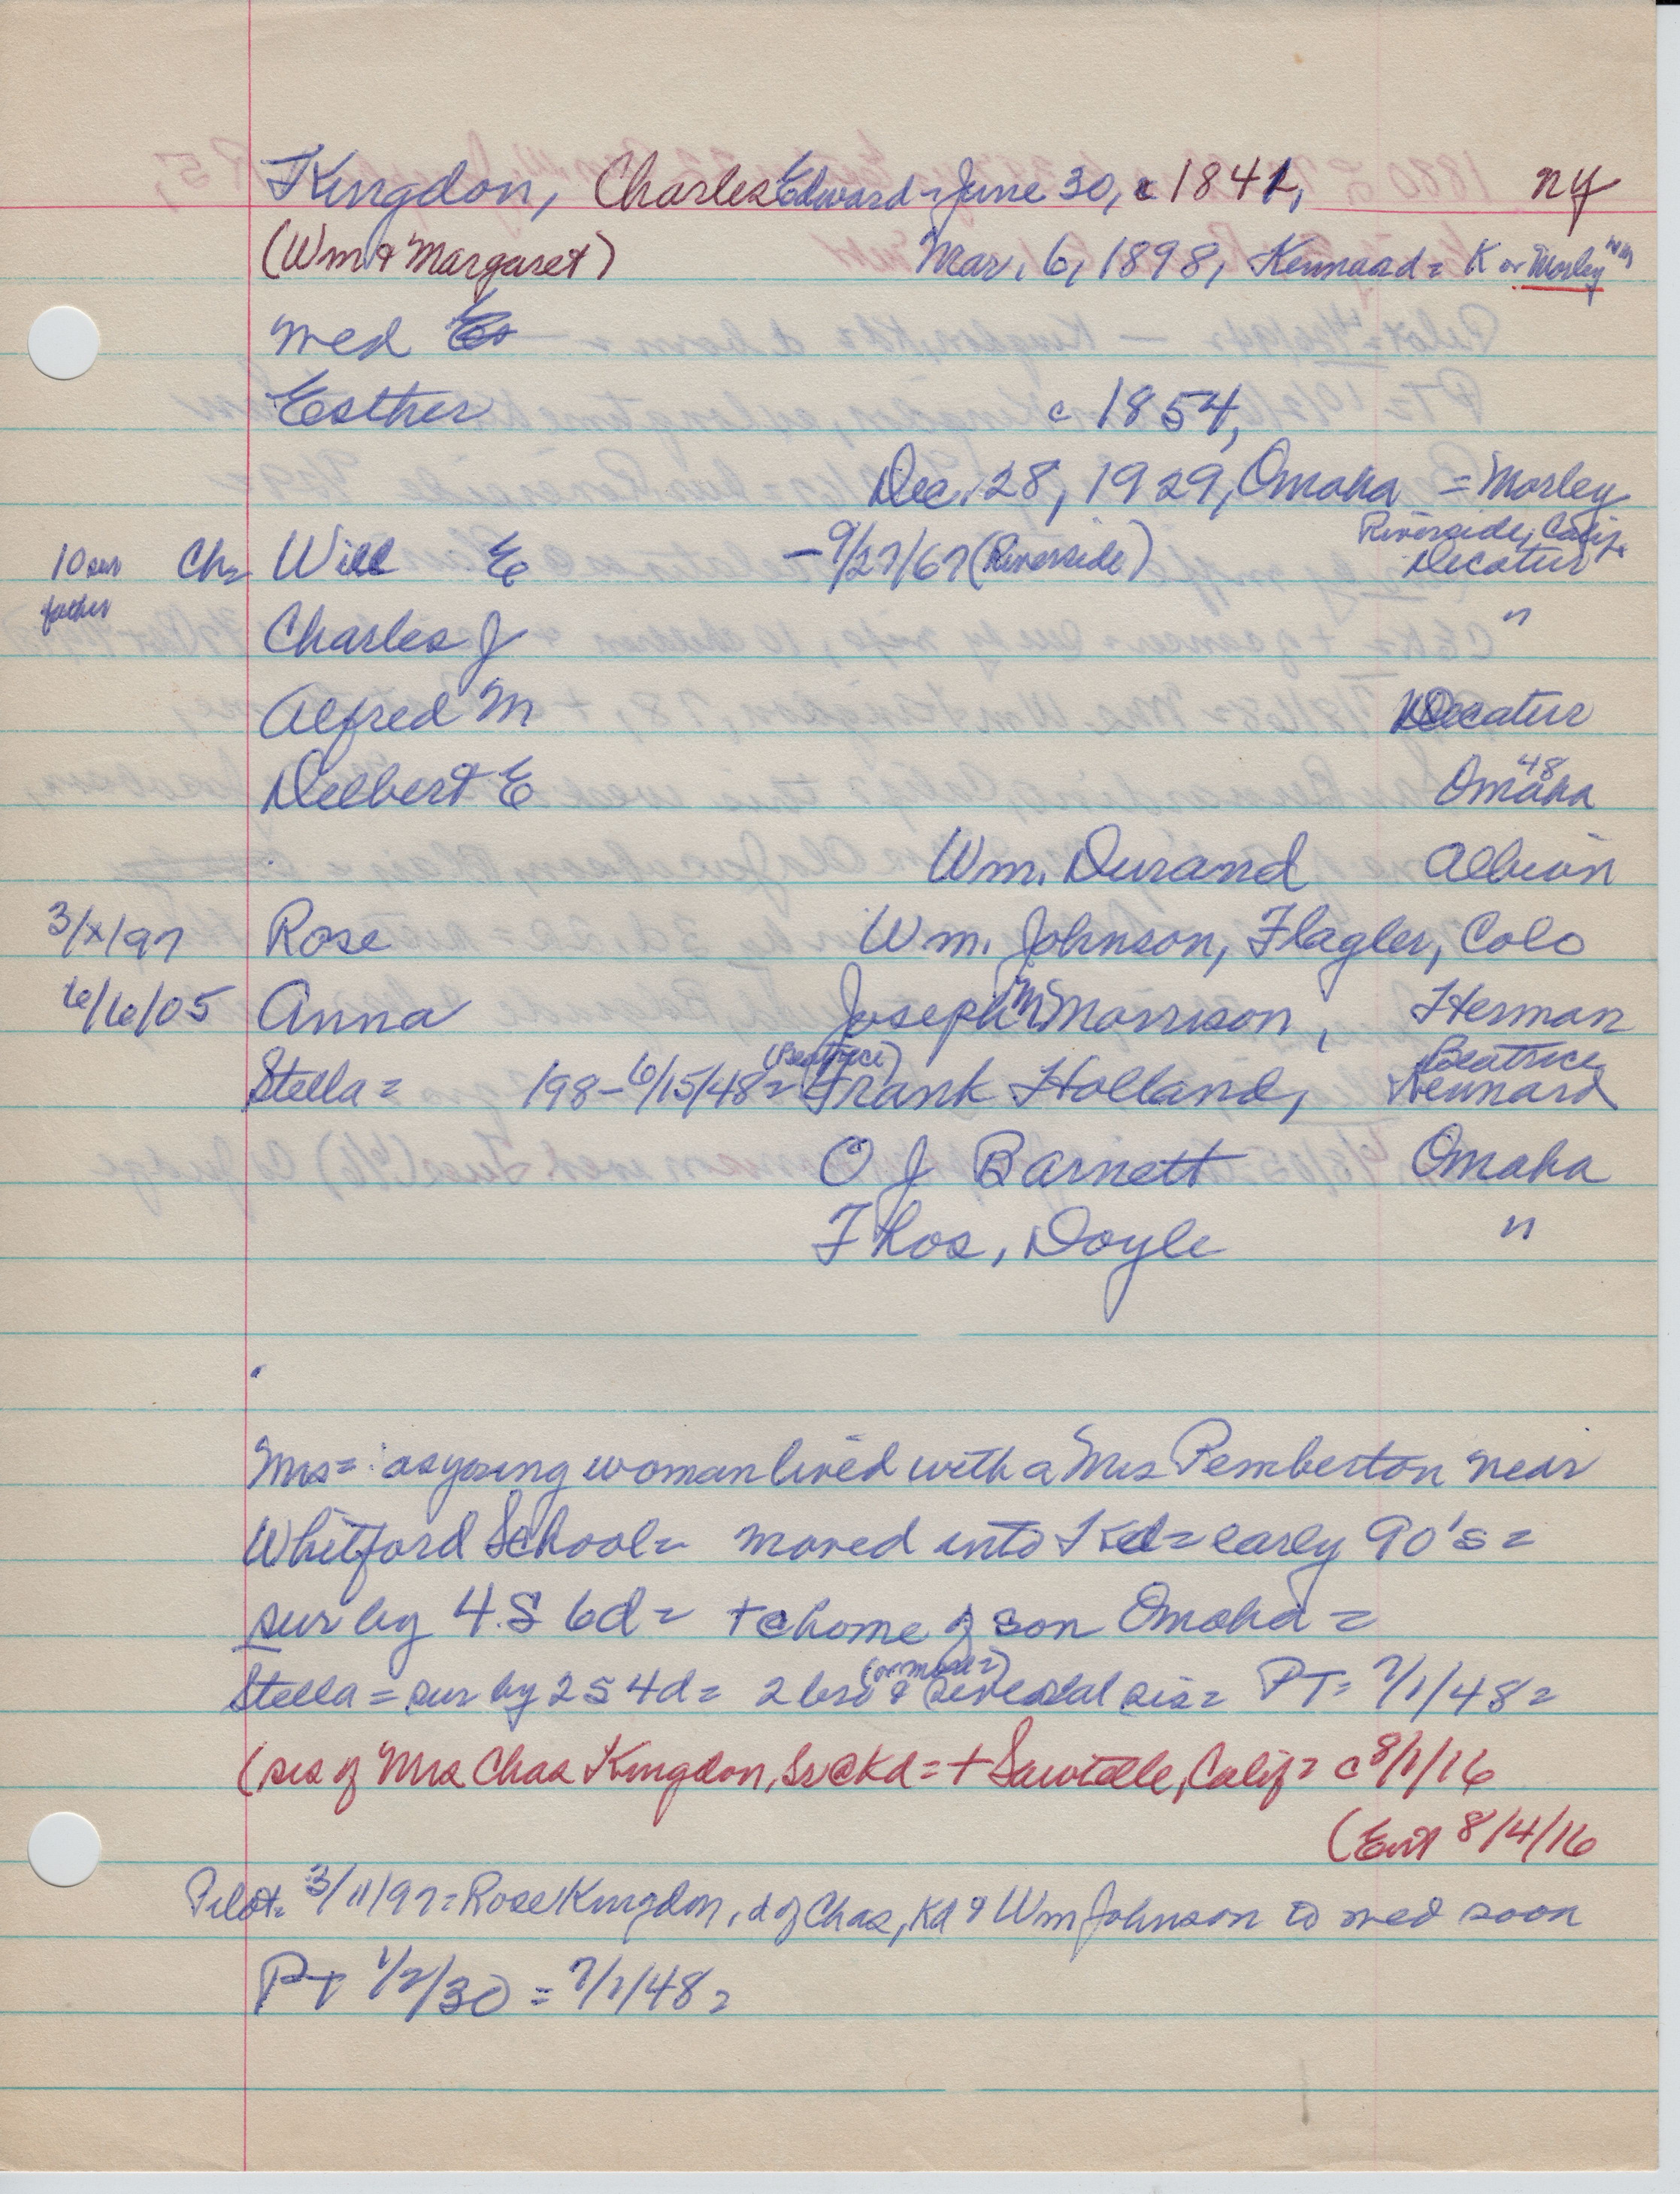 Kingdon, Charles Edward - June 30, c 1841, NY
(Wm & Margaret) Mar. 6, 1898, Kennard = K or Morley
wed
Esther c 1854,
Dec. 28, 1929, Omaha = Morley
Riverside, Calif.
10 sur Ch= Will E - 9/27/67 (Riverside) Decatur
father
Charles J "
Alfred M Decatur
48
Delbert E Omaha
Wm. Durand Albion
3/x/97 Rose Wm. Johnson, Flagler, Colo
6/6/05 Anna Joseph M Morrison, Herman
(Beatrice) Beatrice
Stella = 198 - 6/15/48 = Frank Holland, Kennard
O J Barnett Omaha
Thos, Doyle "
Mrs = as young woman lived with a Mrs Pemberton near
Whitford School = moved into Kd = early 90's =
sur by 4 S 6d = + @ home of son Omaha =
(or more?)
Stella = sur by 2 S 4d = 2 bro & several sis = PT = 7/1/48 =
(sis of Mrs Chas Kingdon, Sr @ Kd = + Sawtelle, Calif = c 8/1/16
(Ent 8/4/16
Pilot = 3/11/97 = Rose Kingdon, d of Chas, Kd & Wm Johnson to wed soon
PT 1/2/30 = 7/1/48 =